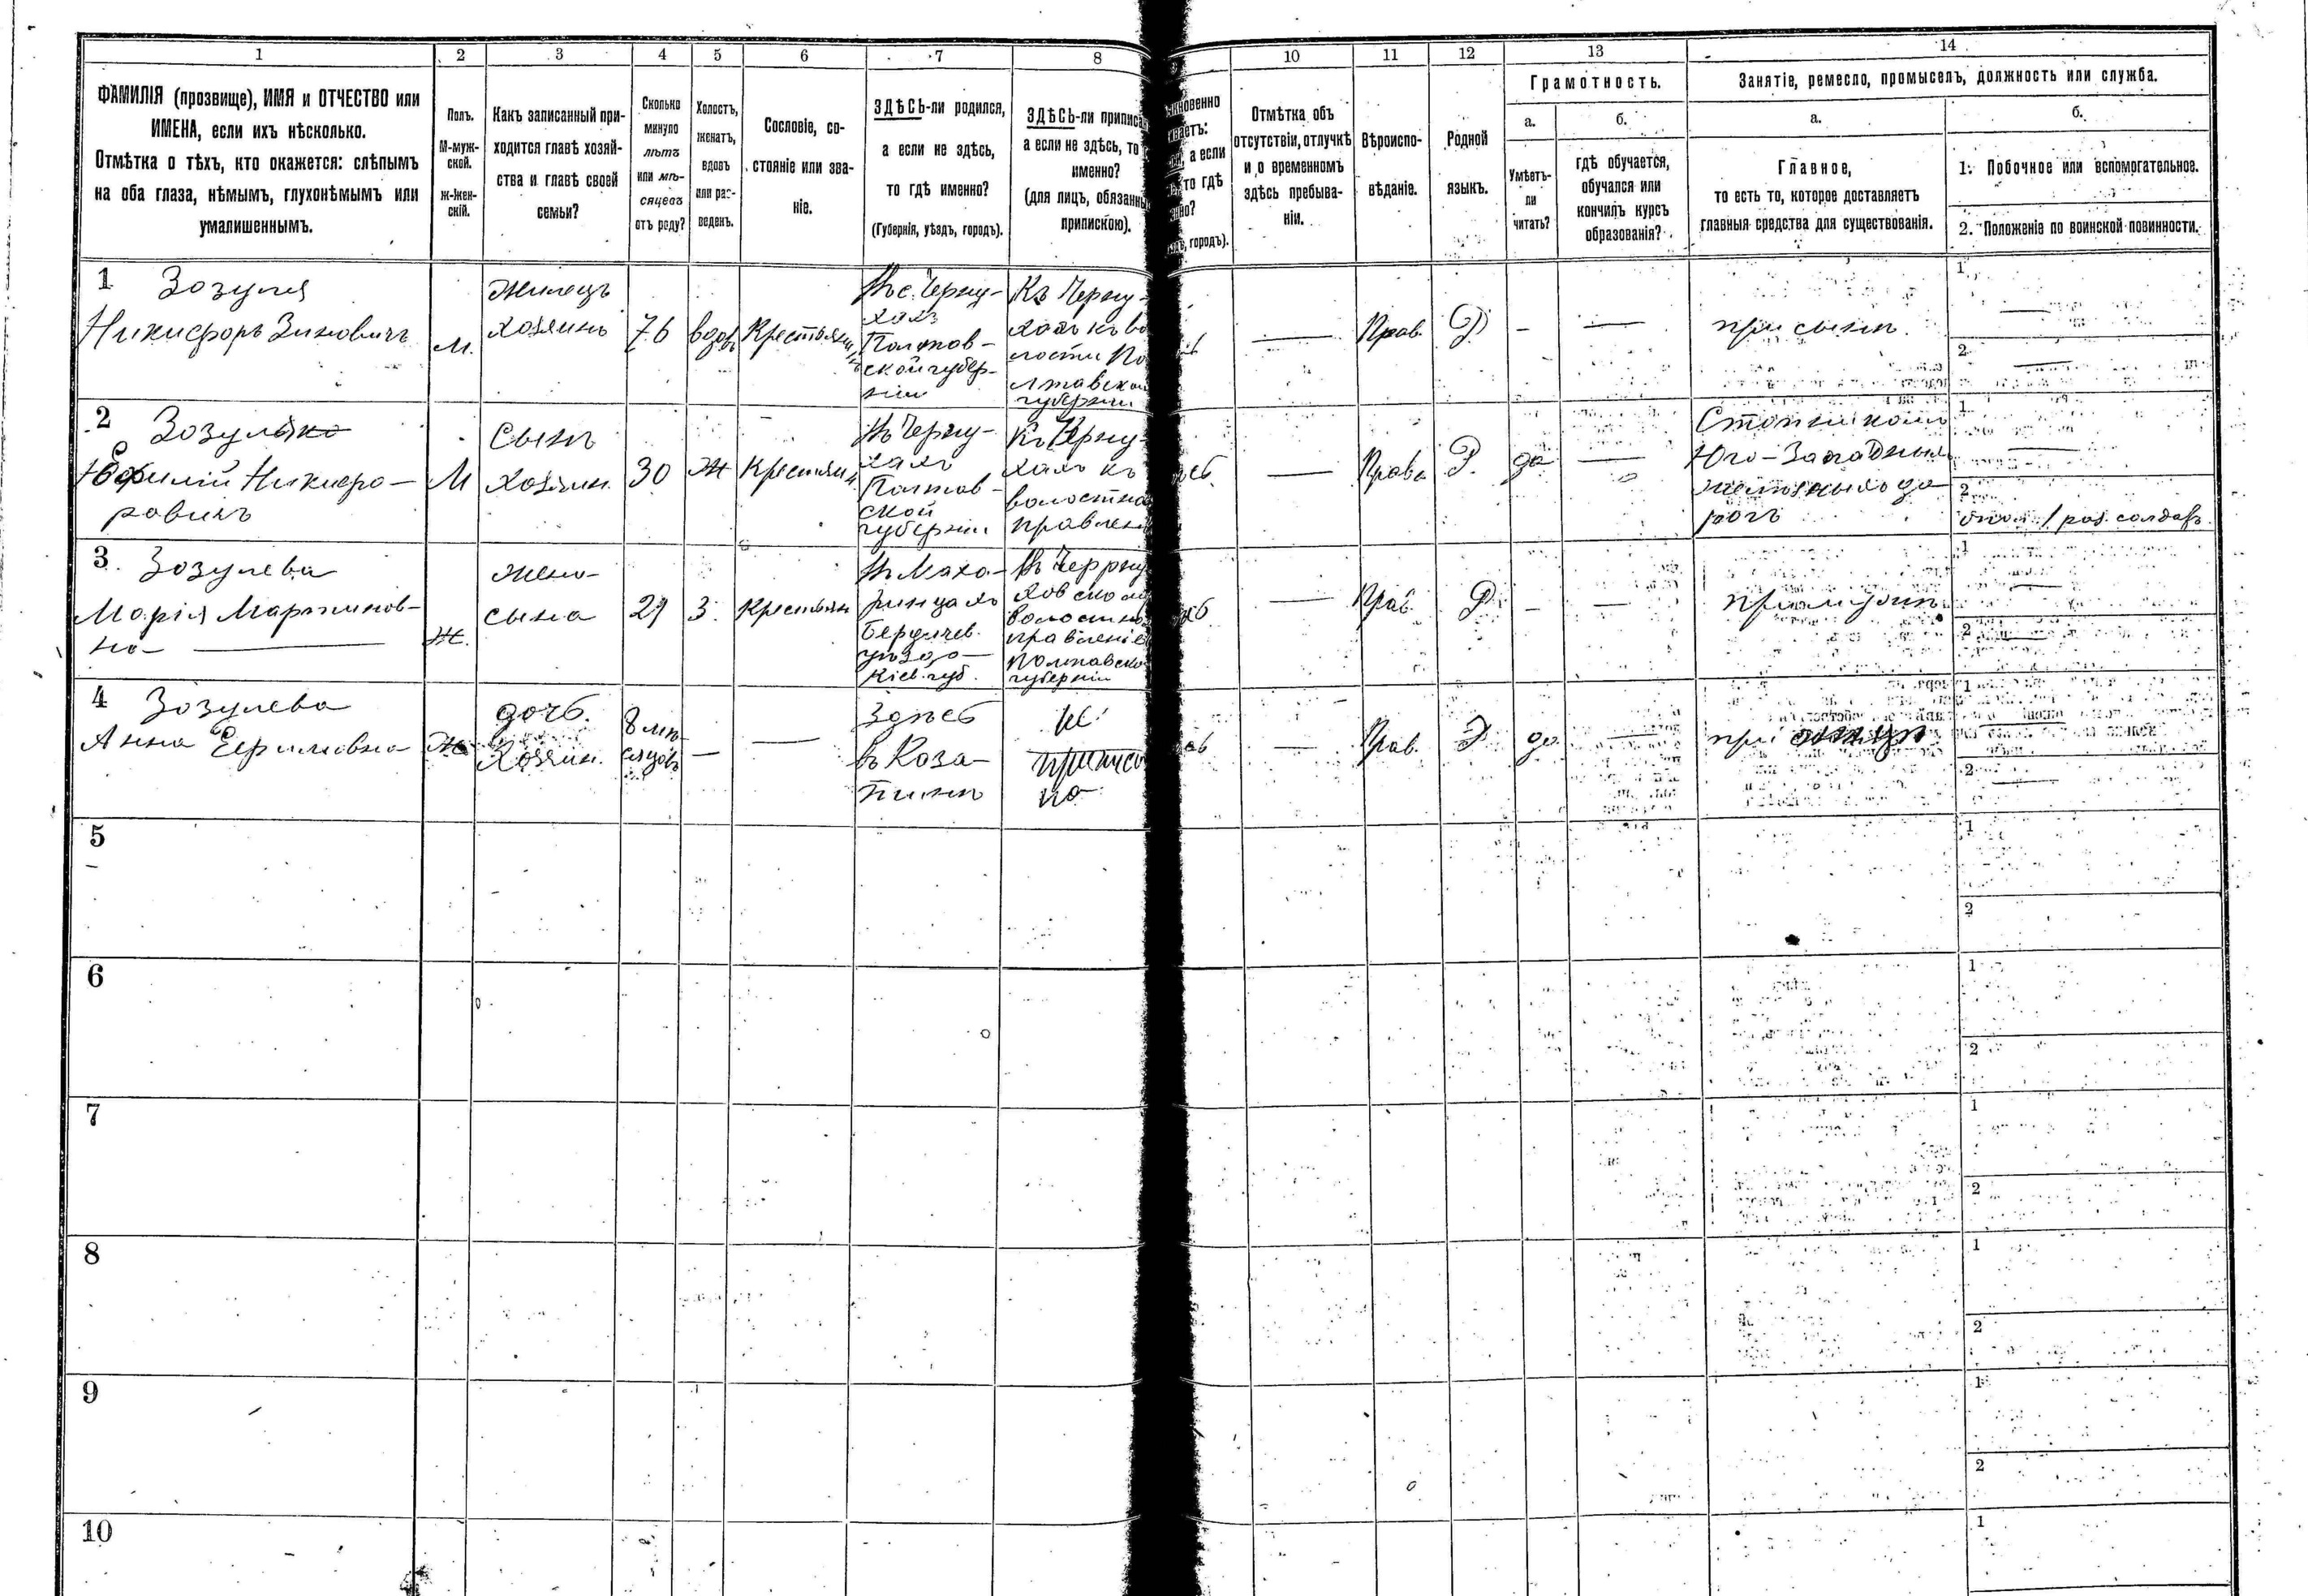 1 2 3 4 5 6 7 8
ФАМИЛІЯ (прозвище), ИМЯ и ОТЧЕСТВО или
ИМЕНА, если ихъ нѣсколько.
Отмѣтка о тѣхъ, кто окажется: слѣпымъ
на оба глаза, нѣмымъ, глухонѣмымъ или
умалишеннымъ.
Полъ.
М-муж-
ской.
Ж-жен-
скій.
Какъ записанный при-
ходится главѣ хозяй-
ства и главѣ своей
семьи?
Сколько
минуло
лѣтъ
или мѣ-
сяцевъ
отъ роду?
Холостъ,
женатъ,
вдовъ
или раз-
веденъ.
Сословіе, со-
стояніе или зва-
ніе.
ЗДѢСЬ-ли родился,
а если не здѣсь,
то гдѣ именно?
(Губернія, уѣздъ, городъ).
ЗДѢСЬ-ли приписа
а если не здѣсь, то
именно?
(для лицъ, обязанны
припискою).
10 11 12 13 14
а если
то гдѣ
городъ).
Отмѣтка объ
отсутствіи, отлучкѣ
и о временномъ
здѣсь пребыва-
ніи.
Вѣроиспо-
вѣданіе.
Родной
языкъ.
Грамотность.
а.
Умѣетъ-
ли
читать?
б.
гдѣ обучается,
обучался или
кончилъ курсъ
образованія?
Занятіе, ремесло, промыселъ, должность или служба.
а.
Главное,
то есть то, которое доставляетъ
главныя средства для существованія.
б.
1. Побочное или вспомогательное.
2. Положеніе по воинской повинности.
1 Зозуля
Никифоръ Зиновичъ
М.
жилецъ
хозяинъ
76
вдов
Крестьянин
Въ с. Черну-
хахъ
Полтов-
ской губер-
ніи
Къ Черну-
хахъ къ во
лости По
лтавской
губерніи
—
Прав.
Р
—
—
при сынѣ
1
—
2
—
2 Зозулько
Ефимій Никифо-
ровичъ
М
Сынъ
хозяин.
30
Ж
Крестьянин
Въ Черну-
хахъ
Полтов-
ской
губерніи
Къ Черну-
хахъ къ
волостно
правлен
—
Право
Р.
да
—
Юго-Западныхъ
желѣзныхъ до
рогъ
1
—
2
3. Зозулева
Марія Мартинов-
на —
Ж.
жена
сына
29
З.
Крестьян
Въ Маха-
ринцахъ
Бердичев.
уѣзда
Кіев. губ.
Въ Черну
ховском
волостно
правленіе
Полтавско
губерніи
—
Прав.
Р.
—
—
при мужѣ
1
—
2
—
4 Зозулева
Анна Ефимовна
Ж
дочь.
Хозяин.
8 мѣ-
сяцовъ
—
—
Здѣсь
въ Коза-
тинѣ
не
приписа
на
—
Прав.
Р.
да
—
при отцѣ
1
2
—
5
1
2
6
1
2
7
1
2
8
1
2
9
1
2
10
1